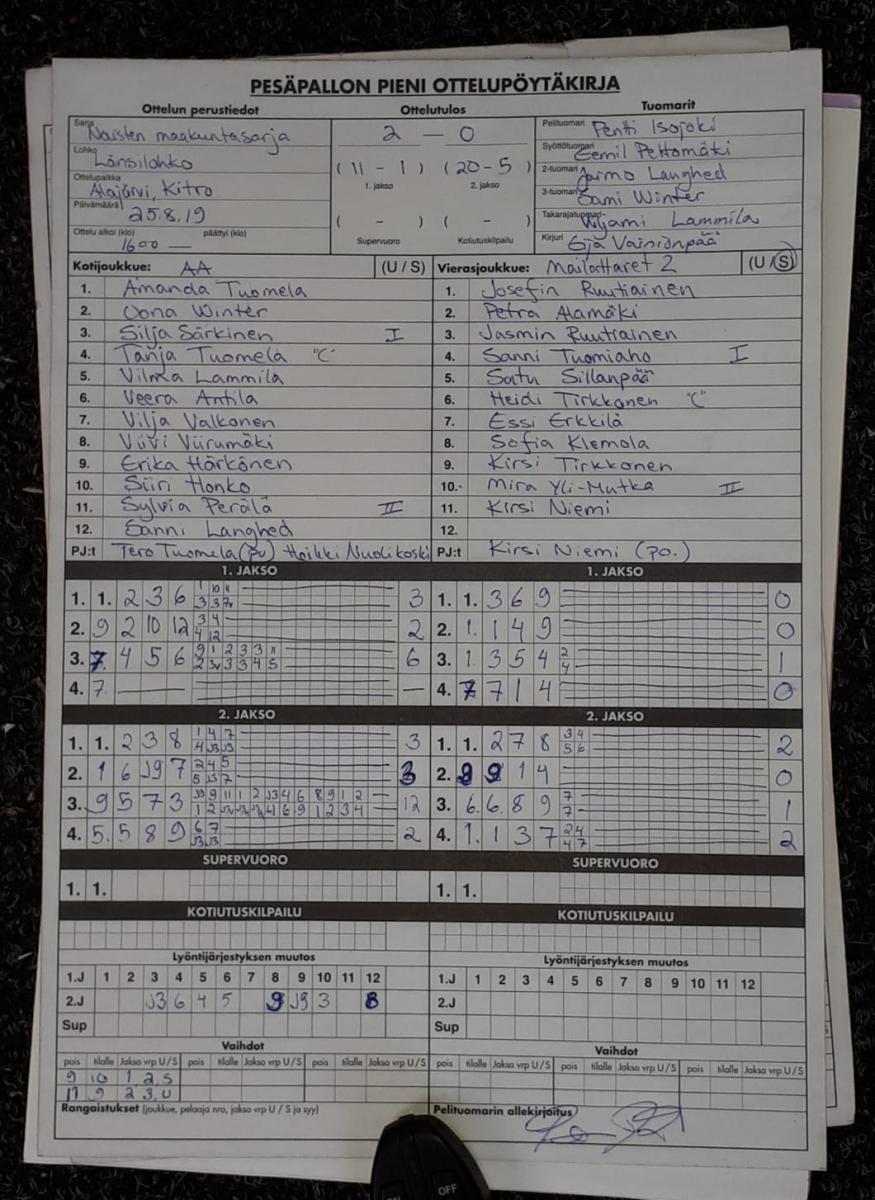 PESÄPALLON PIENI OTTELUPÖYTÄKIRJA
Ottelun perustiedot Ottelutulos Tuomarit
Sarja Naisten maakuntasarja
Lohko Länsilohko
Ottelupaikka Alajärvi, Kitro
Päivämäärä 25.8.19
Ottelu alkoi (klo) 16 00 päättyi (klo)
2 - 0
(11 - 1) (20 - 5)
1. jakso 2. jakso
( - ) ( - )
Supervuoro Kotiutuskilpailu
Pelituomari Pentti Isojoki
Syöttötuomari Eemil Peltomäki
2-tuomari Jarmo Langhed
3-tuomari Sami Winter
Takarajatuomari Lammila
Kirjuri Eija Vainionpää
Kotijoukkue: AA (U / S)
1. Amanda Tuomela
2. Oona Winter
3. Silja Särkinen I
4. Tanja Tuomela "C"
5. Vilma Lammila
6. Veera Antila
7. Vilja Valkonen
8. Viivi Viirumäki
9. Erika Härkönen
10. Siiri Honko
11. Sylvia Perälä II
12. Sanni Langhed
PJ:t Tero Tuomela (pv) Heikki Nuolikoski
Vierasjoukkue: Mailattaret 2 (U / S)
1. Josefin Ruutiainen
2. Petra Alamäki
3. Jasmin Ruutiainen
4. Sanni Tuomiaho I
5. Satu Sillanpää
6. Heidi Tirkkonen "C"
7. Essi Erkkilä
8. Sofia Klemola
9. Kirsi Tirkkonen
10. Mira Yli-Mutka II
11. Kirsi Niemi
12.
PJ:t Kirsi Niemi (po.)
1. JAKSO 1. JAKSO
1. 1. 2 3 6 3 1. 1. 3 6 9 0
2. 9 2 10 12 2 2. 1. 1 4 9 0
3. 7. 4 5 6 6 3. 1. 3 5 4 1
4. 7. — 4. 7 7 1 4 0
2. JAKSO 2. JAKSO
1. 1. 2 3 8 3 1. 1. 2 7 8 2
2. 1 6 J9 7 3 2. 9 9 1 4 0
3. 9 5 7 3 12 3. 6. 6 8 9 1
4. 5. 5 8 9 2 4. 1. 1 3 7 2
SUPERVUORO SUPERVUORO
1. 1. 1. 1.
KOTIUTUSKILPAILU KOTIUTUSKILPAILU
Lyöntijärjestyksen muutos Lyöntijärjestyksen muutos
1.J 1 2 3 4 5 6 7 8 9 10 11 12 1.J 1 2 3 4 5 6 7 8 9 10 11 12
2.J J3 6 4 5 9 J9 3 8 2.J
Sup Sup
Vaihdot Vaihdot
pois tilalle Jakso vrp U/S pois tilalle Jakso vrp U/S pois tilalle Jakso vrp U/S pois tilalle Jakso vrp U/S pois tilalle Jakso vrp U/S pois tilalle Jakso vrp U/S
9 10 1 2.S
11 9 2 3.U
Rangaistukset (joukkue, pelaaja nro, jakso vrp U / S ja syy) Pelituomarin allekirjoitus
OFF